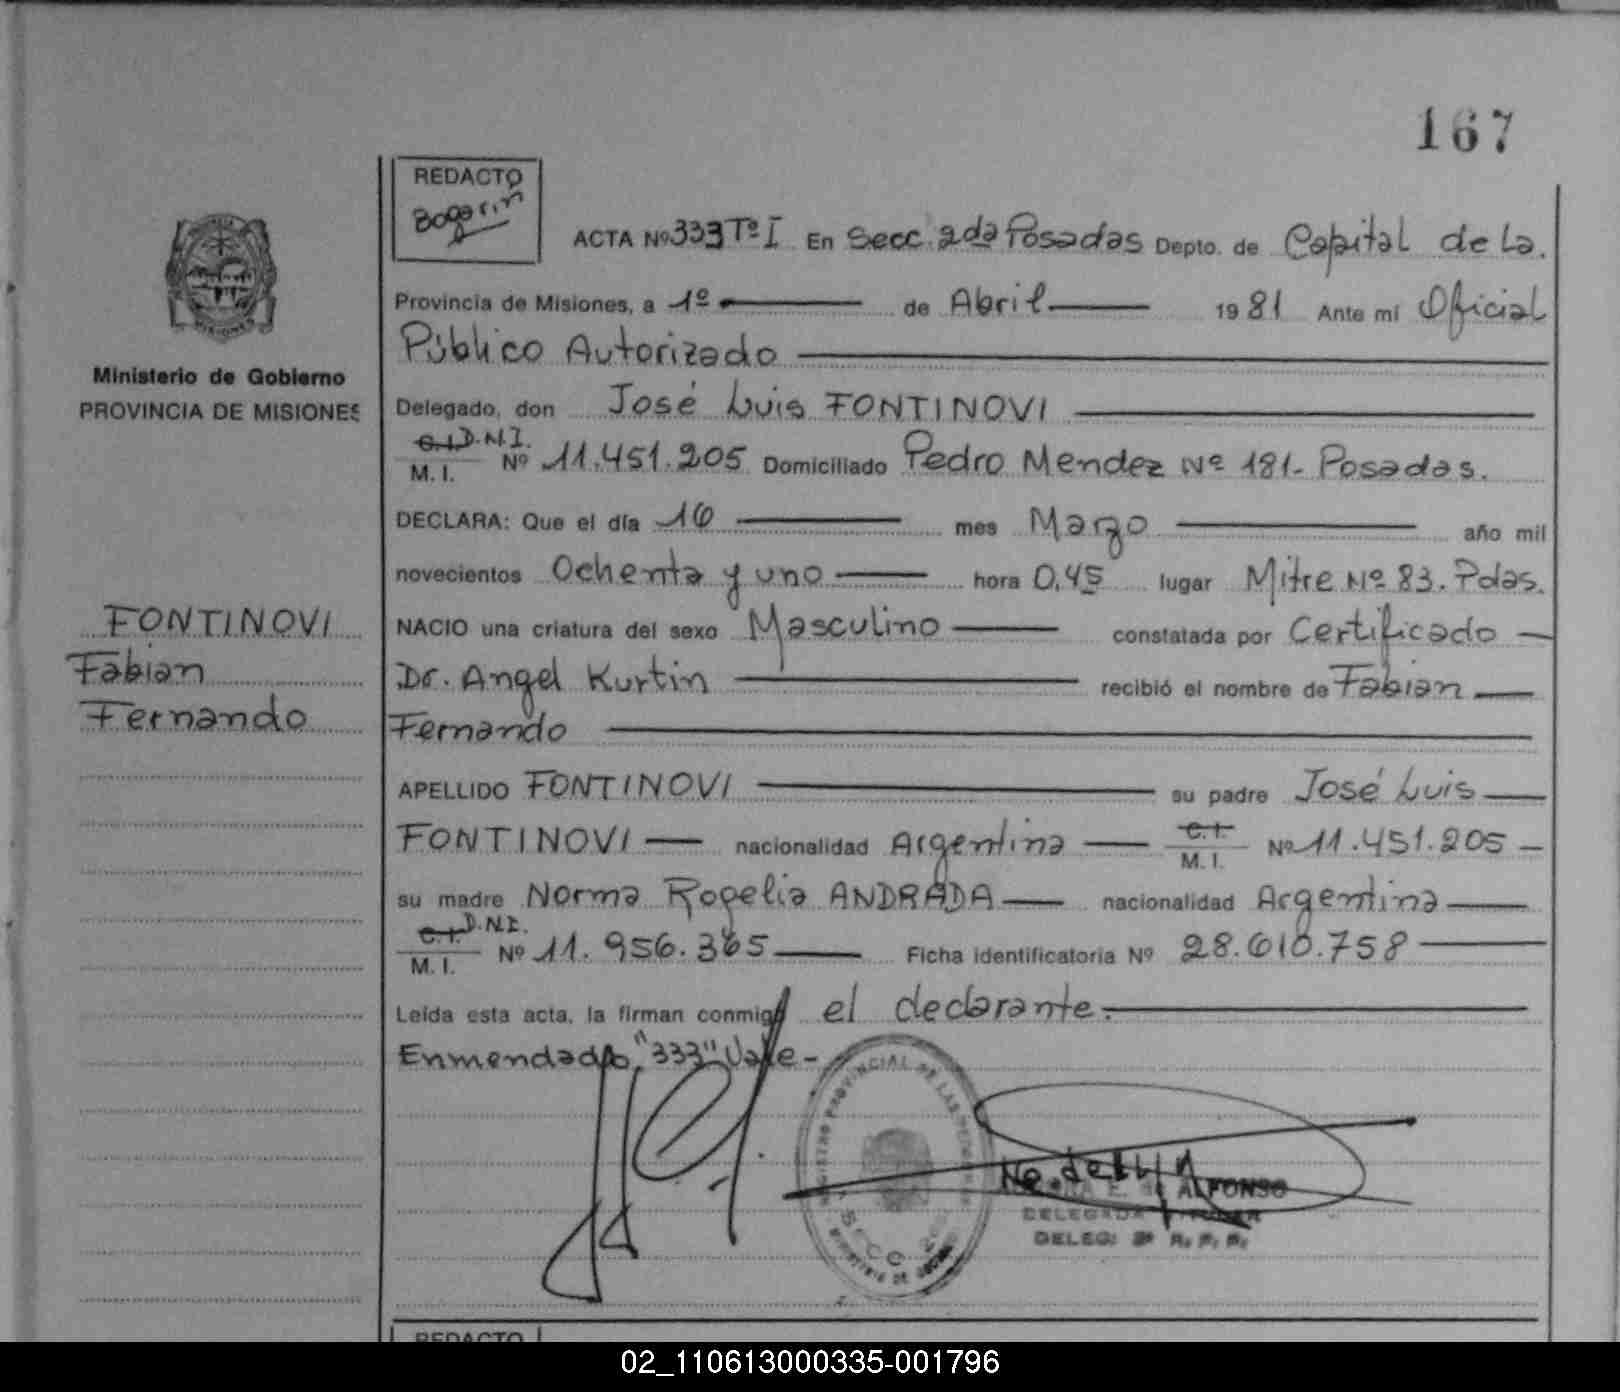 167
REDACTO
Bogarin
ACTA Nº 333 Tº I En Secc. 2da Posadas Depto. de Capital de la.
Provincia de Misiones, a 1º de Abril 1981 Ante mi Oficial
Público Autorizado
Ministerio de Gobierno
PROVINCIA DE MISIONES
Delegado, don José Luis FONTINOVI
C.I. D.N.I.
M. I. Nº 11.451.205 Domiciliado Pedro Mendez Nº 181- Posadas.
DECLARA: Que el día 16 mes Marzo año mil
novecientos Ochenta y uno hora 0,45 lugar Mitre Nº 83. Pdas.
FONTINOVI
Fabian
Fernando
NACIO una criatura del sexo Masculino constatada por Certificado
Dr. Angel Kurtin recibió el nombre de Fabian
Fernando
APELLIDO FONTINOVI su padre José Luis
FONTINOVI nacionalidad Argentina C.I. M. I. Nº 11.451.205
su madre Norma Rogelia ANDRADA nacionalidad Argentina
C.I. D.N.I.
M. I. Nº 11.956.365 Ficha identificatoria Nº 28.610.758
Leída esta acta, la firman conmigo el declarante.
Enmendado "333" Vale-
REGISTRO PROVINCIAL DE LAS PERSONAS
SECC 2da
MINISTERIO DE GOBIERNO
E. de ALFONSO
DELEGADA TITULAR
DELEG. 2ª R. P. P.
REDACTO
02_110613000335-001796